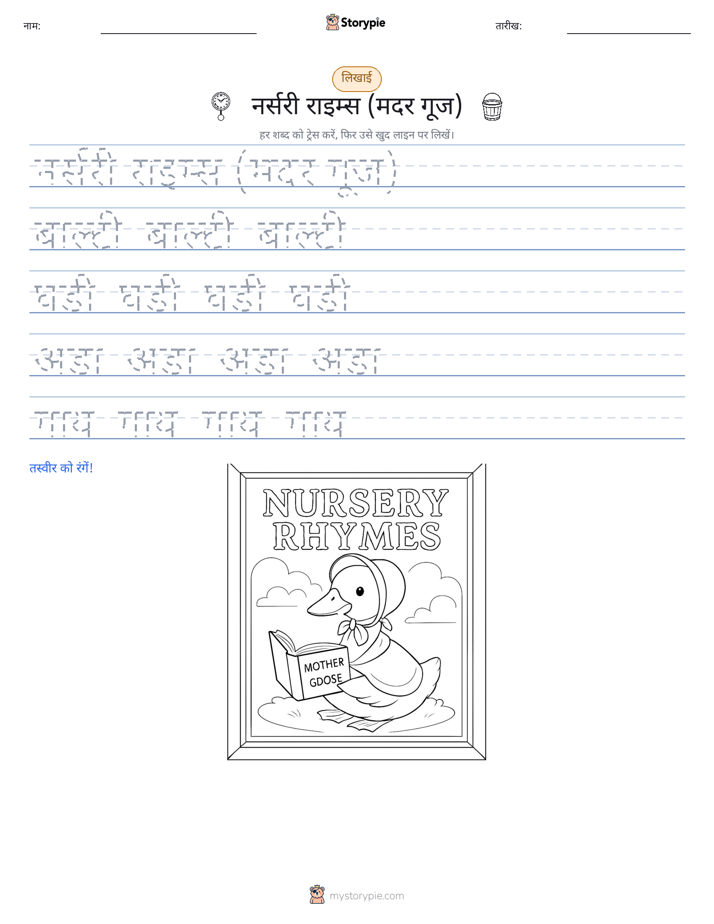 नाम:
Storypie
तारीख:
लिखाई
नर्सरी राइम्स (मदर गूज)
हर शब्द को ट्रेस करें, फिर उसे खुद लाइन पर लिखें।
नर्सरी राइम्स (मदर गूज)
बाल्टी बाल्टी बाल्टी
घड़ी घड़ी घड़ी घड़ी
अंडा अंडा अंडा अंडा
गाय गाय गाय गाय
तस्वीर को रंगें!
NURSERY
RHYMES
MOTHER
GDOSE
mystorypie.com